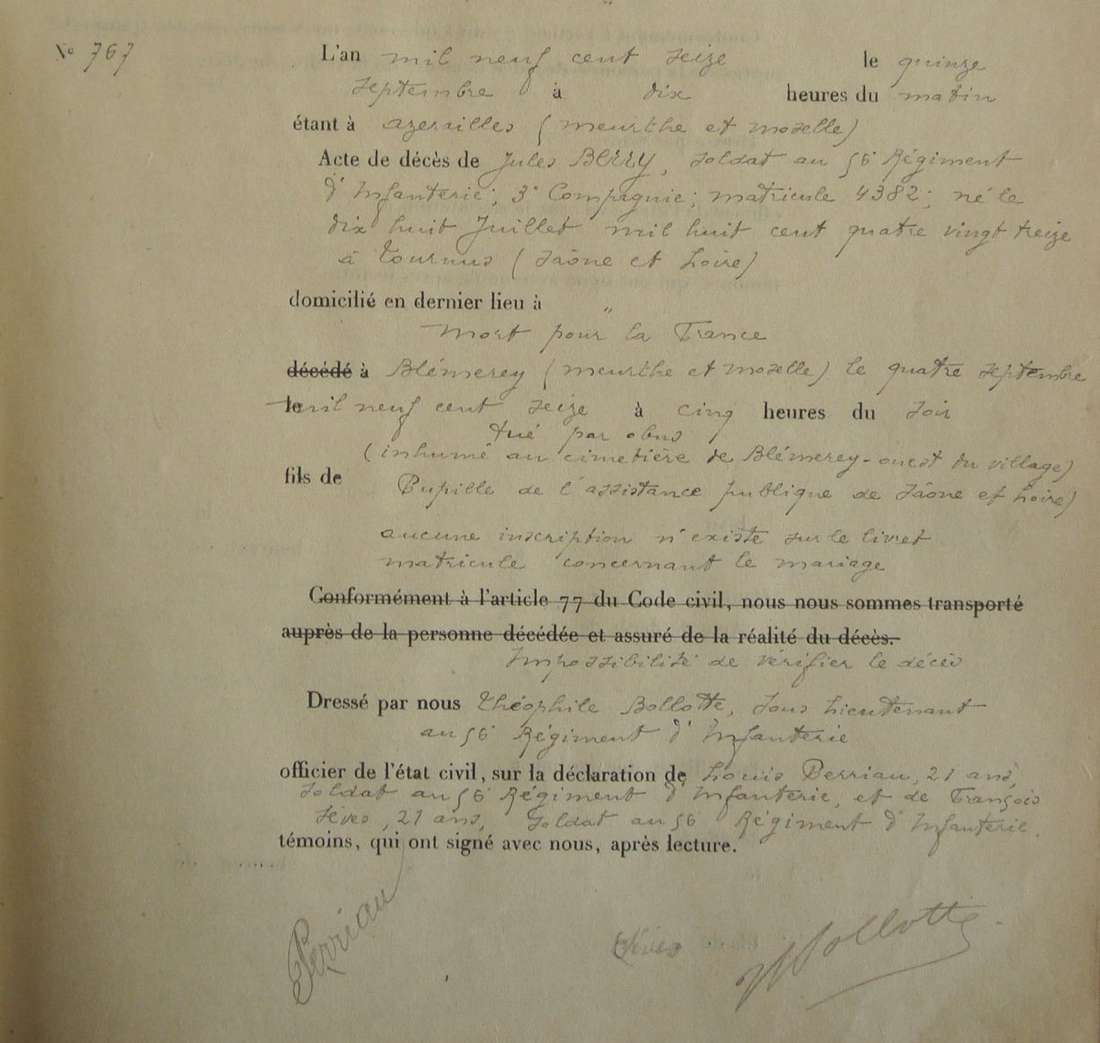 N° 767
L'an mil neuf cent seize le quinze
septembre à dix heures du matin
étant à azerailles (meurthe et moselle)
Acte de décès de Jules BERRY, soldat au 56 Régiment
d'Infanterie; 3e Compagnie; matricule 4382; né le
dix huit Juillet mil huit cent quatre vingt treize
à Tournus (Saône et Loire)
domicilié en dernier lieu à "
Mort pour la France
décédé à Blémerey (meurthe et moselle) le quatre septembre
le mil neuf cent seize à cinq heures du soir
tué par obus
(inhumé au cimetière de Blémerey-ouest du village)
fils de Pupille de l'assistance publique de Saône et Loire)
aucune inscription n'existe sur le livret
matricule concernant le mariage
Conformément à l'article 77 du Code civil, nous nous sommes transporté
auprès de la personne décédée et assuré de la réalité du décès.
Impossibilité de vérifier le décès
Dressé par nous Théophile Bollotte, sous Lieutenant
au 56 Régiment d'Infanterie
officier de l'état civil, sur la déclaration de Louis Perriau, 21 ans,
soldat au 56 Régiment d'Infanterie, et de François
Sèves, 21 ans, Soldat au 56 Régiment d'Infanterie.
témoins, qui ont signé avec nous, après lecture.
Perriau Sèves Bollotte